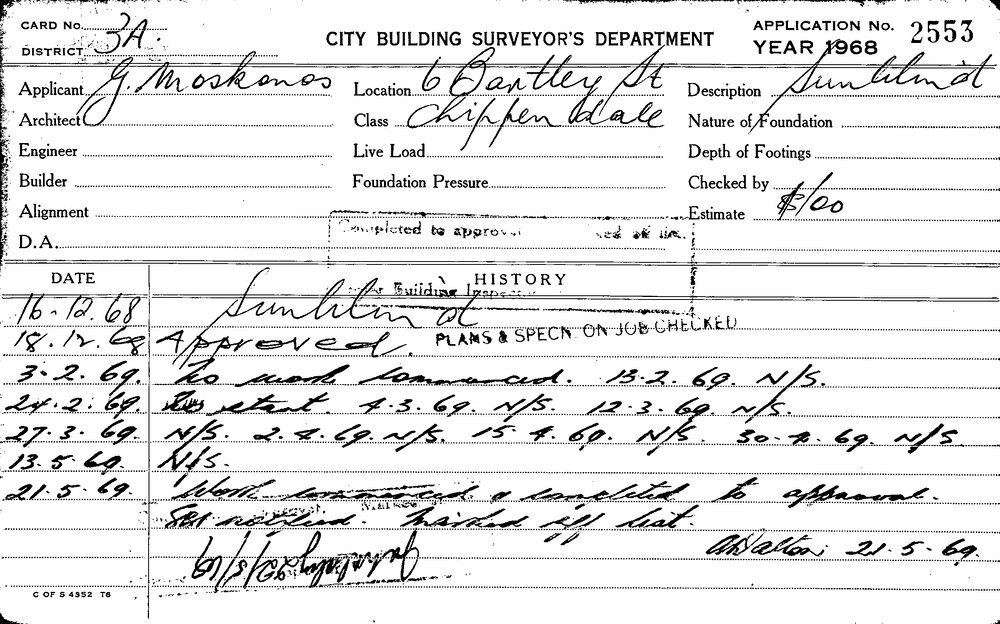 CARD No. 3A.
DISTRICT
CITY BUILDING SURVEYOR'S DEPARTMENT
APPLICATION No. 2553
YEAR 1968
Applicant G. Moskonas Location 6 Bartley St Description Sunblind
Architect Class Chippendale Nature of Foundation
Engineer Live Load Depth of Footings
Builder Foundation Pressure Checked by
Alignment Estimate $100
Completed to approval
D.A.
DATE HISTORY
Building Inspector
16-12.68 Sunblind
18.12.68 Approved. PLANS & SPECN. ON JOB CHECKED
3-2.69. No work commenced. 13-2.69. N/S.
24-2.69. No start. 4-3.69. N/S. 12-3.69 N/S.
27-3.69. N/S. 2-4.69. N/S. 15-4.69. N/S. 30-4.69. N/S.
13-5.69. N/S.
21-5.69. Work commenced & completed to approval.
notified. Marked off list.
21-5-69.
22/5/69
C OF S 4352 T6